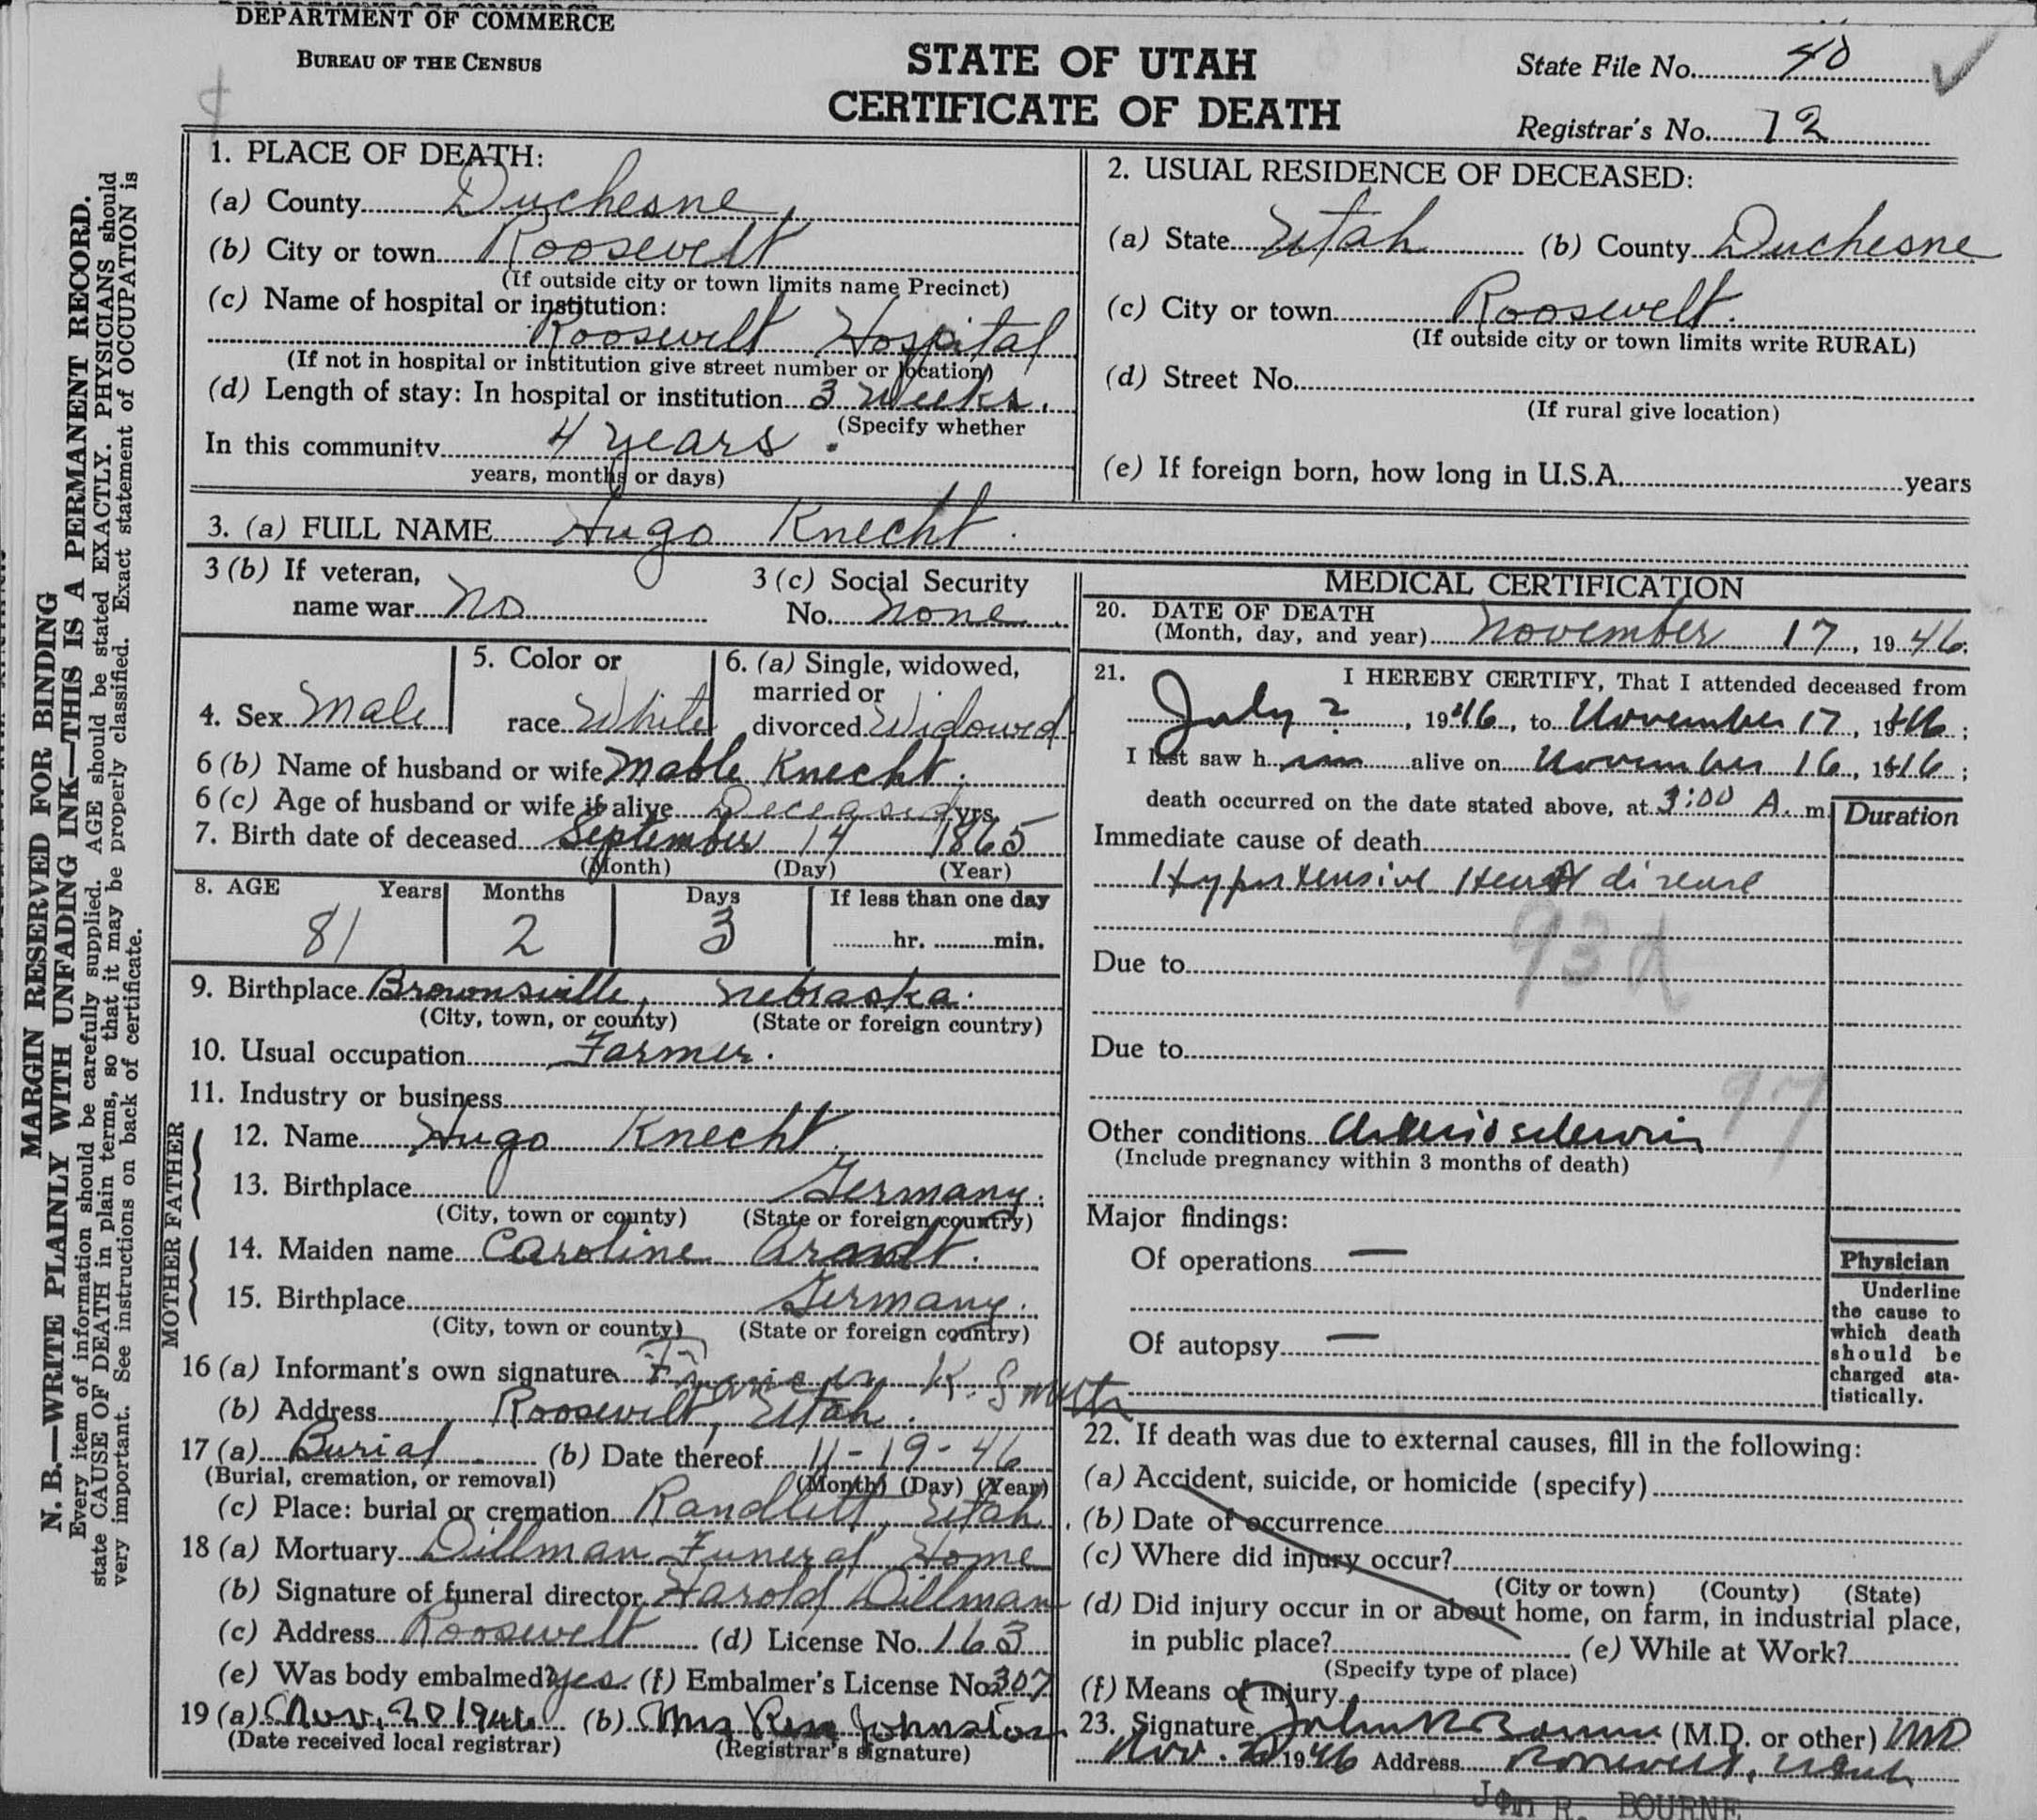 DEPARTMENT OF COMMERCE
BUREAU OF THE CENSUS
STATE OF UTAH
CERTIFICATE OF DEATH
State File No. 40
Registrar's No. 72
MARGIN RESERVED FOR BINDING
N. B.—WRITE PLAINLY WITH UNFADING INK—THIS IS A PERMANENT RECORD.
Every item of information should be carefully supplied. AGE should be stated EXACTLY. PHYSICIANS should
state CAUSE OF DEATH in plain terms, so that it may be properly classified. Exact statement of OCCUPATION is
very important. See instructions on back of certificate.
1. PLACE OF DEATH:
(a) County Duchesne
(b) City or town Roosevelt
(If outside city or town limits name Precinct)
(c) Name of hospital or institution:
Roosevelt Hospital
(If not in hospital or institution give street number or location)
(d) Length of stay: In hospital or institution 3 Weeks.
(Specify whether
In this community 4 years.
years, months or days)
2. USUAL RESIDENCE OF DECEASED:
(a) State Utah (b) County Duchesne
(c) City or town Roosevelt.
(If outside city or town limits write RURAL)
(d) Street No.
(If rural give location)
(e) If foreign born, how long in U.S.A. years
3. (a) FULL NAME Hugo Knecht.
3 (b) If veteran,
name war no
3 (c) Social Security
No. none
4. Sex Male
5. Color or
race White
6. (a) Single, widowed,
married or
divorced Widowed
6 (b) Name of husband or wife Mable Knecht.
6 (c) Age of husband or wife if alive Deceased yrs.
7. Birth date of deceased September 14 1865
(Month) (Day) (Year)
8. AGE Years Months Days If less than one day
81 2 3 hr. min.
9. Birthplace Brownsville, Nebraska.
(City, town, or county) (State or foreign country)
10. Usual occupation Farmer.
11. Industry or business
FATHER
12. Name Hugo Knecht.
13. Birthplace Germany.
(City, town or county) (State or foreign country)
MOTHER
14. Maiden name Caroline Arandt.
15. Birthplace Germany.
(City, town or county) (State or foreign country)
16 (a) Informant's own signature K. Smith
(b) Address Roosevelt, Utah.
17 (a) Burial (b) Date thereof 11-19-46
(Burial, cremation, or removal) (Month) (Day) (Year)
(c) Place: burial or cremation Randlett, Utah.
18 (a) Mortuary Dillman Funeral Home
(b) Signature of funeral director Harold Dillman
(c) Address Roosevelt (d) License No. 163
(e) Was body embalmed? yes. (f) Embalmer's License No. 307
19 (a) Nov. 20 1946 (b) Mrs Johnston
(Date received local registrar) (Registrar's signature)
MEDICAL CERTIFICATION
20. DATE OF DEATH
(Month, day, and year) November 17, 1946.
21. I HEREBY CERTIFY, That I attended deceased from
July ?, 1946, to November 17, 1946;
I last saw him alive on November 16, 1946;
death occurred on the date stated above, at 3:00 A. m.
Duration
Immediate cause of death
Hypertensive Heart disease
93d
Due to
Due to
97
Other conditions Arteriosclerosis
(Include pregnancy within 3 months of death)
Major findings:
Of operations —
Of autopsy —
Physician
Underline
the cause to
which death
should be
charged sta-
tistically.
22. If death was due to external causes, fill in the following:
(a) Accident, suicide, or homicide (specify)
(b) Date of occurrence
(c) Where did injury occur?
(City or town) (County) (State)
(d) Did injury occur in or about home, on farm, in industrial place,
in public place? (e) While at Work?
(Specify type of place)
(f) Means of injury
23. Signature John R Bourne (M.D. or other) MD
Nov. 20 1946 Address Roosevelt, Utah
R. BOURNE